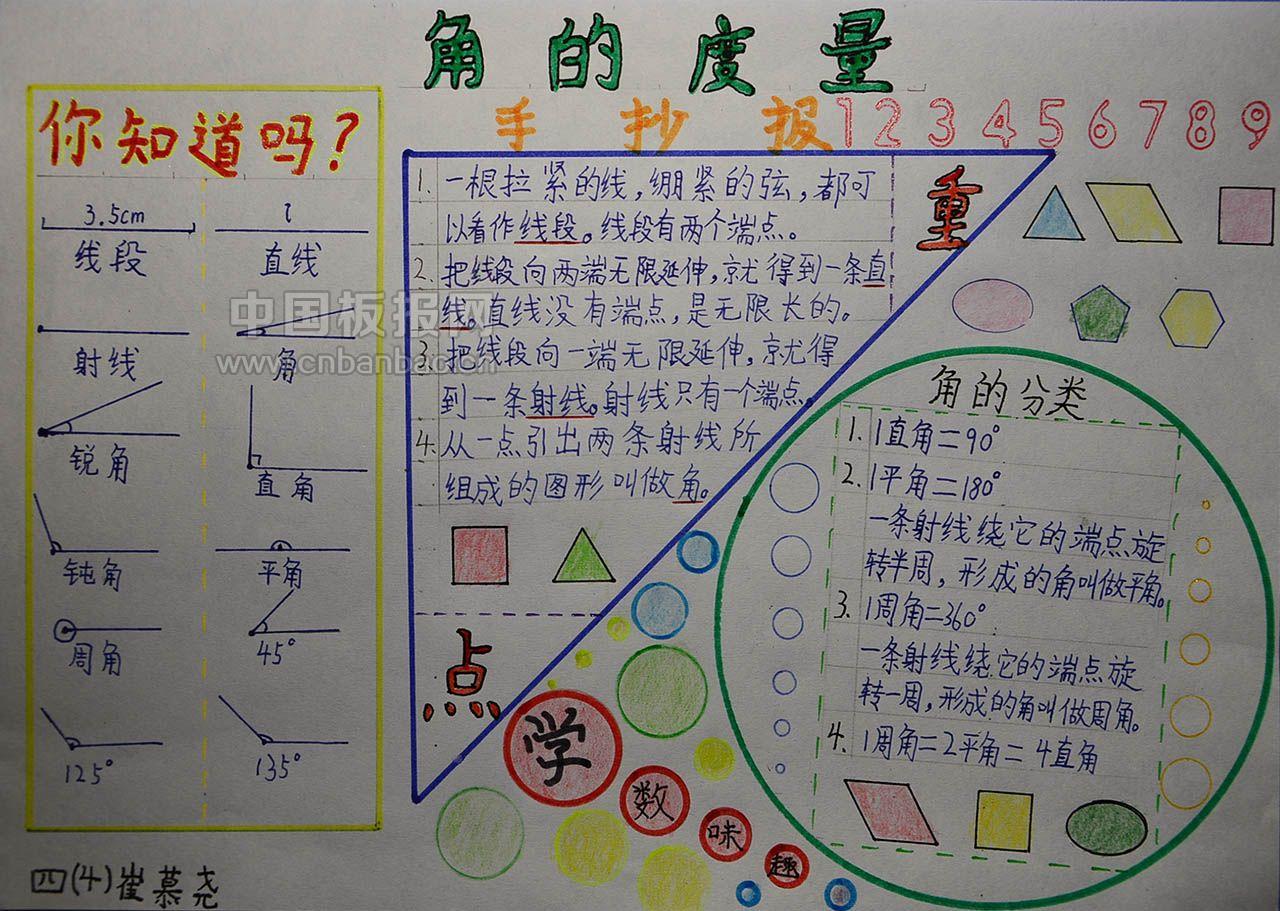 角的度量
手抄报123456789
你知道吗？
3.5cm
l
线段
直线
射线
角
锐角
直角
钝角
平角
周角
45°
125°
135°
四(4)崔慕尧
中国板报网
www.cnbanbao.cn
重
1. 一根拉紧的线，绷紧的弦，都可
以看作线段。线段有两个端点。
2. 把线段向两端无限延伸，就得到一条直
线。直线没有端点，是无限长的。
3. 把线段向一端无限延伸，就得
到一条射线。射线只有一个端点。
4. 从一点引出两条射线所
组成的图形叫做角。
点
角的分类
1. 1直角=90°
2. 1平角=180°
一条射线绕它的端点旋
转半周，形成的角叫做平角。
3. 1周角=360°
一条射线绕它的端点旋
转一周，形成的角叫做周角。
4. 1周角=2平角=4直角
学
数
味
趣